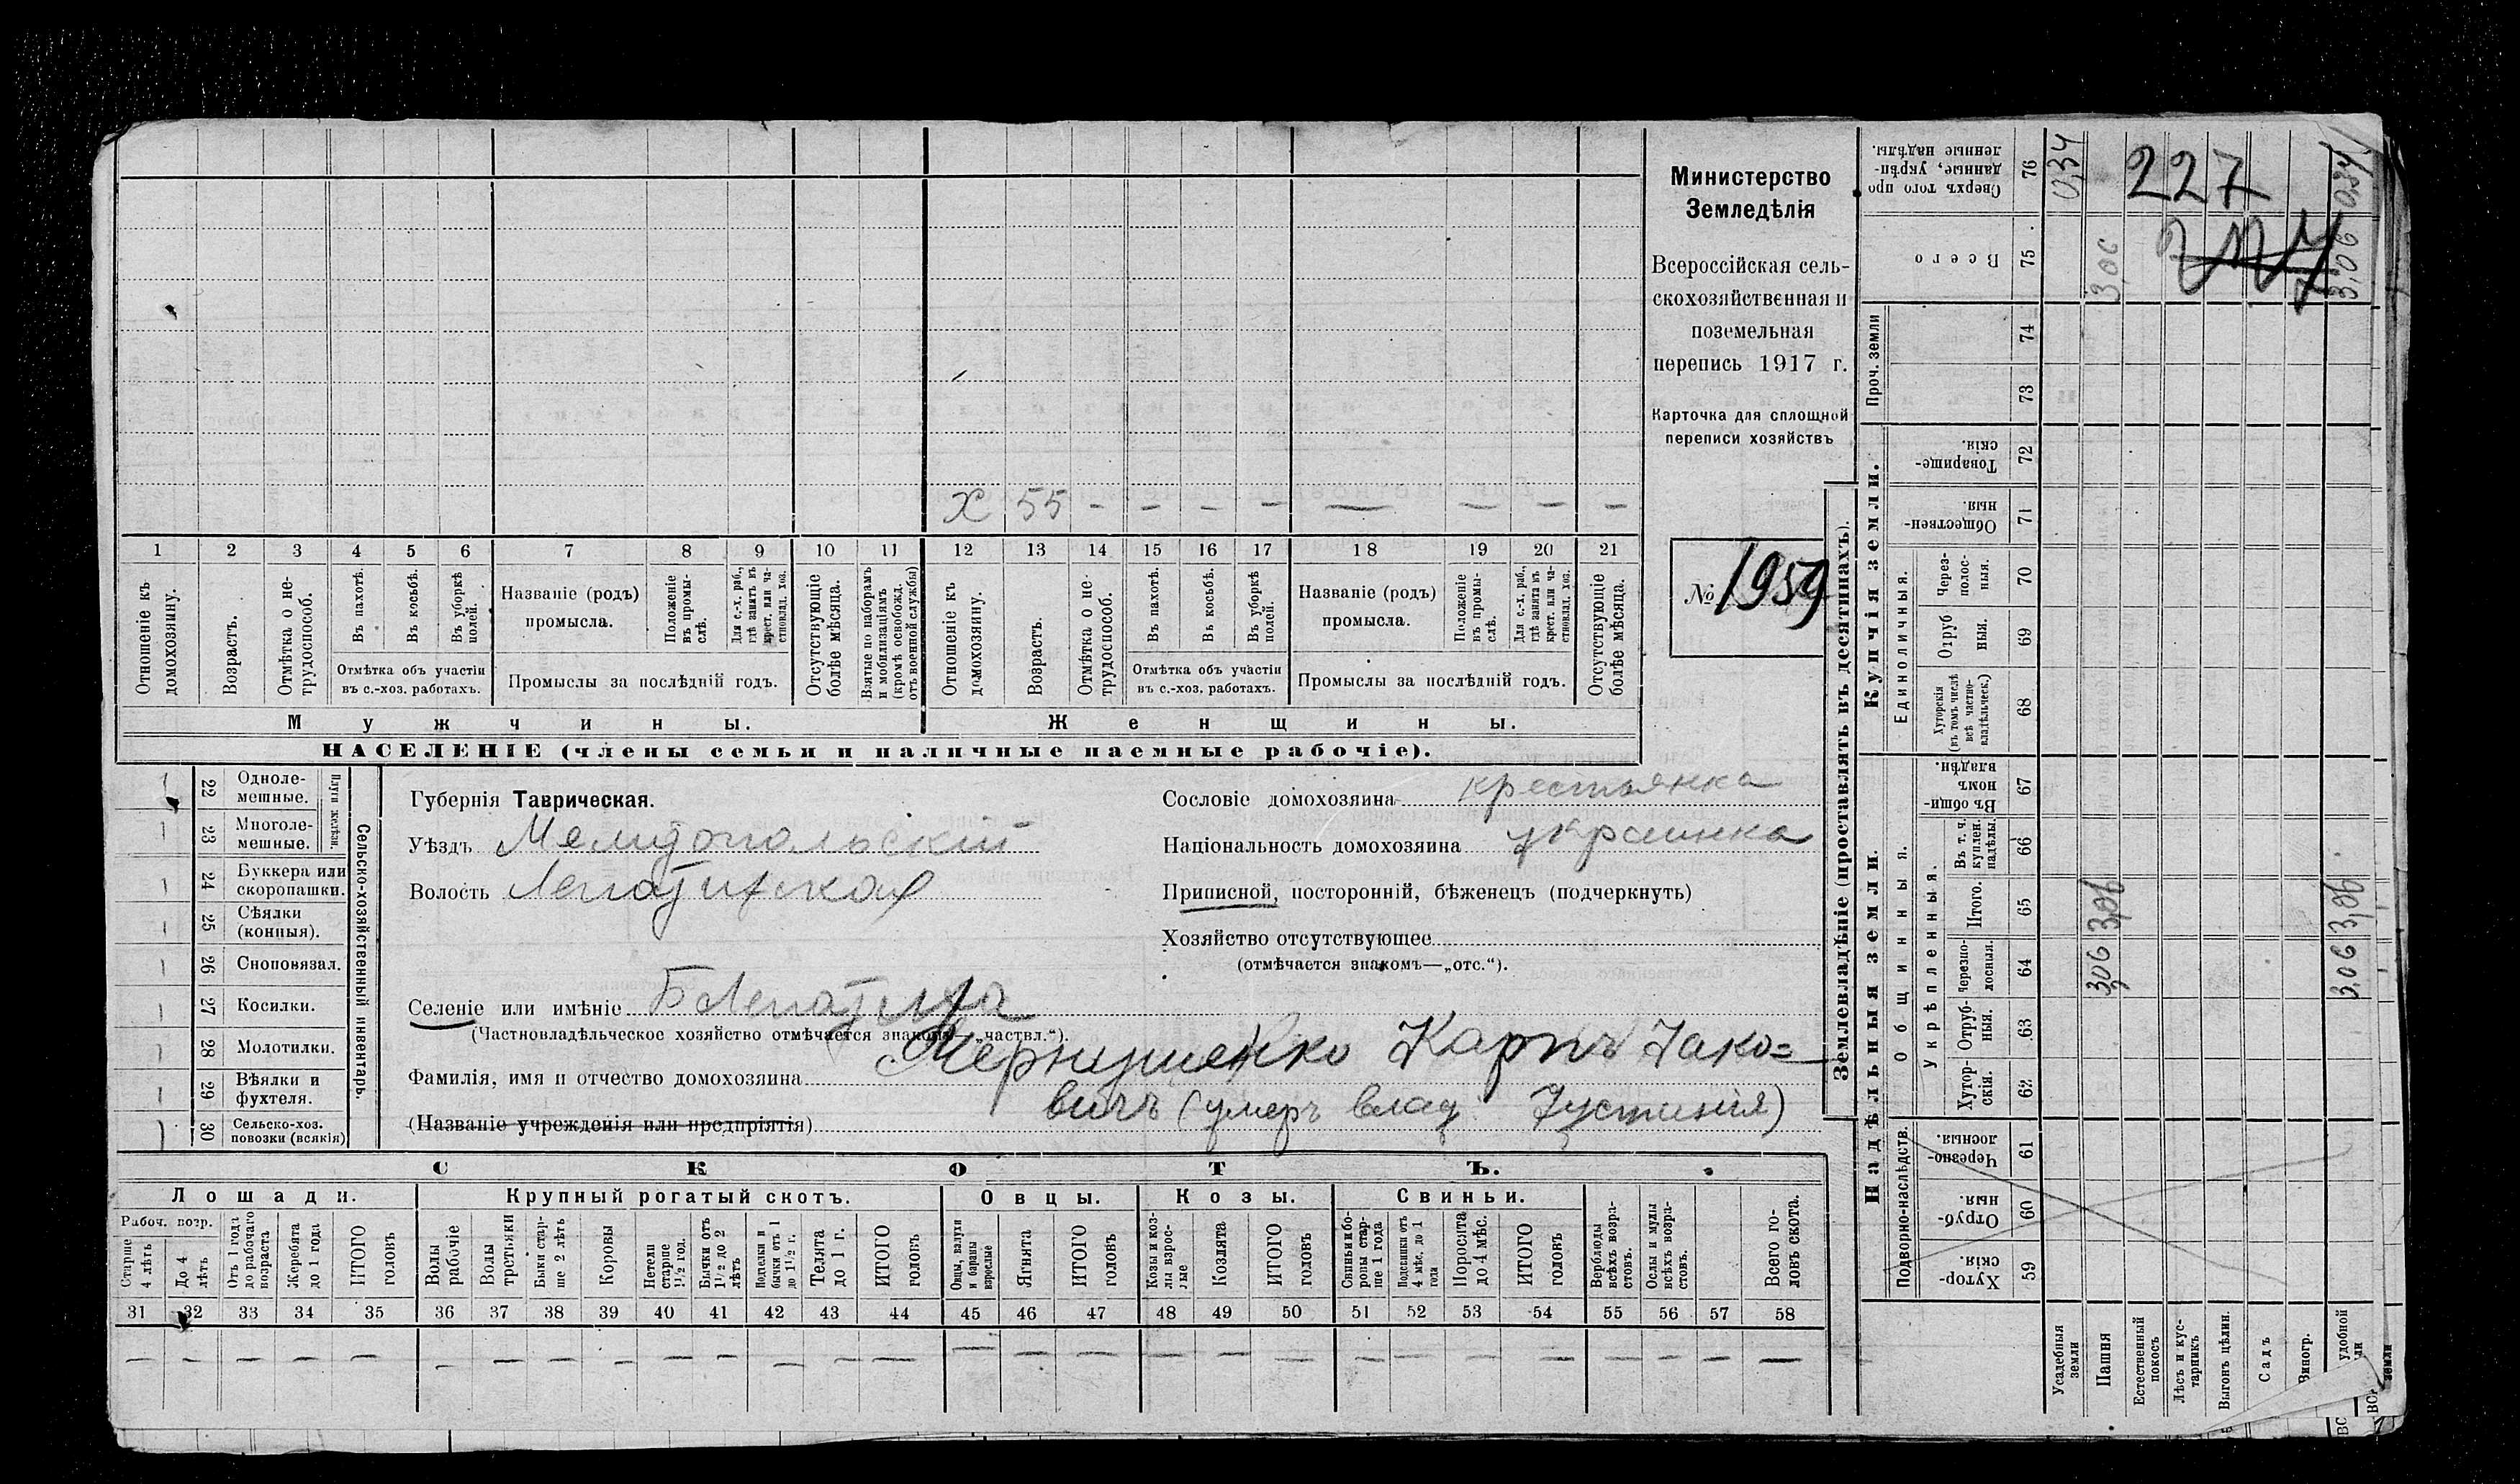 Министерство
Земледѣлія
Всероссійская сель-
скохозяйственная и
поземельная
перепись 1917 г.
Карточка для сплошной
переписи хозяйствъ
№ 1959
Х 55 - - - - - - - -
1 2 3 4 5 6 7 8 9 10 11 12 13 14 15 16 17 18 19 20 21
Отношеніе къ домохозяину.
Возрастъ.
Отмѣтка о не-трудоспособ.
Въ пахотѣ.
Въ косьбѣ.
Въ уборкѣ полей.
Отмѣтка объ участіи
въ с.-хоз. работахъ.
Названіе (родъ)
промысла.
Положеніе въ промы-слѣ.
Для с.-х. раб., гдѣ занятъ въ крест. или ча-стновлад. хоз.
Промыслы за послѣдній годъ.
Отсутствующіе болѣе мѣсяца.
Взятые по наборамъ и мобилизаціямъ (кромѣ освобожд. отъ военной службы)
Отношеніе къ домохозяину.
Возрастъ.
Отмѣтка о не-трудоспособ.
Въ пахотѣ.
Въ косьбѣ.
Въ уборкѣ полей.
Отмѣтка объ участіи
въ с.-хоз. работахъ.
Названіе (родъ)
промысла.
Положеніе въ промы-слѣ.
Для с.-х. раб., гдѣ занята въ крест. или ча-стновлад. хоз.
Промыслы за послѣдній годъ.
Отсутствующіе болѣе мѣсяца.
Мужчины. Женщины.
НАСЕЛЕНІЕ (члены семьи и наличные наемные рабочіе).
22 Одноле-мешные.
23 Многоле-мешные.
Плуги желѣзн.
24 Буккера или скоропашки.
25 Сѣялки (конныя).
26 Сноповязал.
27 Косилки.
28 Молотилки.
29 Вѣялки и фухтеля.
30 Сельско-хоз. повозки (всякія)
Сельско-хозяйственный инвентарь.
Губернія Таврическая.
Уѣздъ Мелитопольскій
Волость Лепатихская
Селеніе или имѣніе Б Лепатиха
(Частновладѣльческое хозяйство отмѣчается знакомъ „частвл.“).
Сословіе домохозяина крестьянка
Національность домохозяина украинка
Приписной, посторонній, бѣженецъ (подчеркнуть)
Хозяйство отсутствующее
(отмѣчается знакомъ—„отс.“).
Фамилія, имя и отчество домохозяина Чернушенко Карпъ Іако=
вичъ (умеръ влад. Іустинія)
(Названіе учрежденія или предпріятія)
СКОТЪ.
Лошади. Крупный рогатый скотъ. Овцы. Козы. Свиньи.
Рабоч. возр.
Старше 4 лѣтъ
До 4 лѣтъ
Отъ 1 года до рабочаго возраста
Жеребята до 1 года
ИТОГО головъ
Волы рабочіе
Волы третьяки
Быки стар-ше 2 лѣтъ
Коровы
Нетели старше 1½ год.
Бычки отъ 1½ до 2 лѣтъ
Подтелки и бычки отъ 1 до 1½ г.
Телята до 1 г.
ИТОГО головъ
Овцы, валухи и бараны взрослые
Ягнята
ИТОГО головъ
Козы и коз-лы взрос-лые
Козлята
ИТОГО головъ
Свиньи и бо-ровы стар-ше 1 года
Подсвинки отъ 4 мѣс. до 1 года
Поросята до 4 мѣс.
ИТОГО головъ
Верблюды всѣхъ возра-стовъ.
Ослы и мулы всѣхъ возра-стовъ.
Всего го-ловъ скота.
31 32 33 34 35 36 37 38 39 40 41 42 43 44 45 46 47 48 49 50 51 52 53 54 55 56 57 58
Землевладѣніе (проставлять въ десятинахъ).
Купчія земли.
Надѣльныя земли.
Сверхъ того про данные, укрѣп-ленные надѣлы. 76 0,34 227 0,34
Всего 75 3,06 3,06
Проч. земли 74
73
Товарище-скія. 72
Обществен-ныя. 71
Единоличныя.
Через-полос-ныя. 70
Отруб ныя. 69
Хуторскія (въ томъ числѣ всѣ частно-владѣльческ.) 68
Общинныя.
Въ общи-номъ владѣн. 67
Укрѣпленныя.
Въ т. ч. куплен. надѣлы. 66
Итого. 65 3,06 3,06
Черезпо-лосныя. 64 3,06 3,06
Отруб-ныя. 63
Хутор-скія. 62
Подворно-наслѣдств.
Черезпо-лосныя. 61
Отруб-ныя. 60
Хутор-скія. 59
Усадебныя земли
Пашня
Естественный покосъ
Лѣсъ и кус-тарникъ
Выгонъ цѣлин.
Садъ
Виногр.
удобной
земли